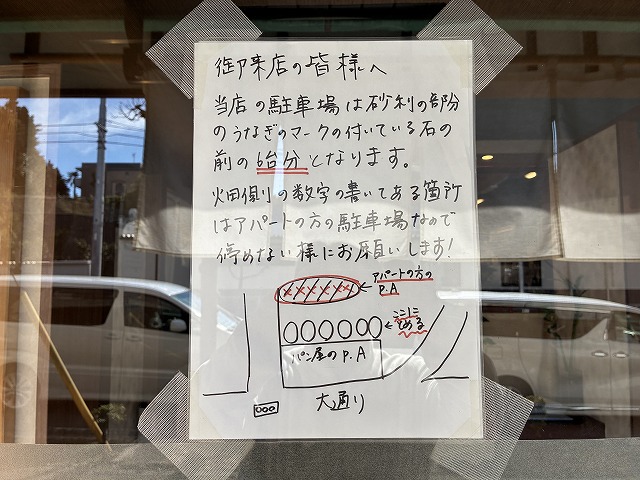 御来店の皆様へ
当店の駐車場は砂利の部分
のうなぎのマークの付いている石の
前の6台分となります。
畑側の数字の書いてある箇所
はアパートの方の駐車場なので
停めない様にお願いします!
アパートの方の
P.A
ここに
とめる
パン屋のP.A
大通り